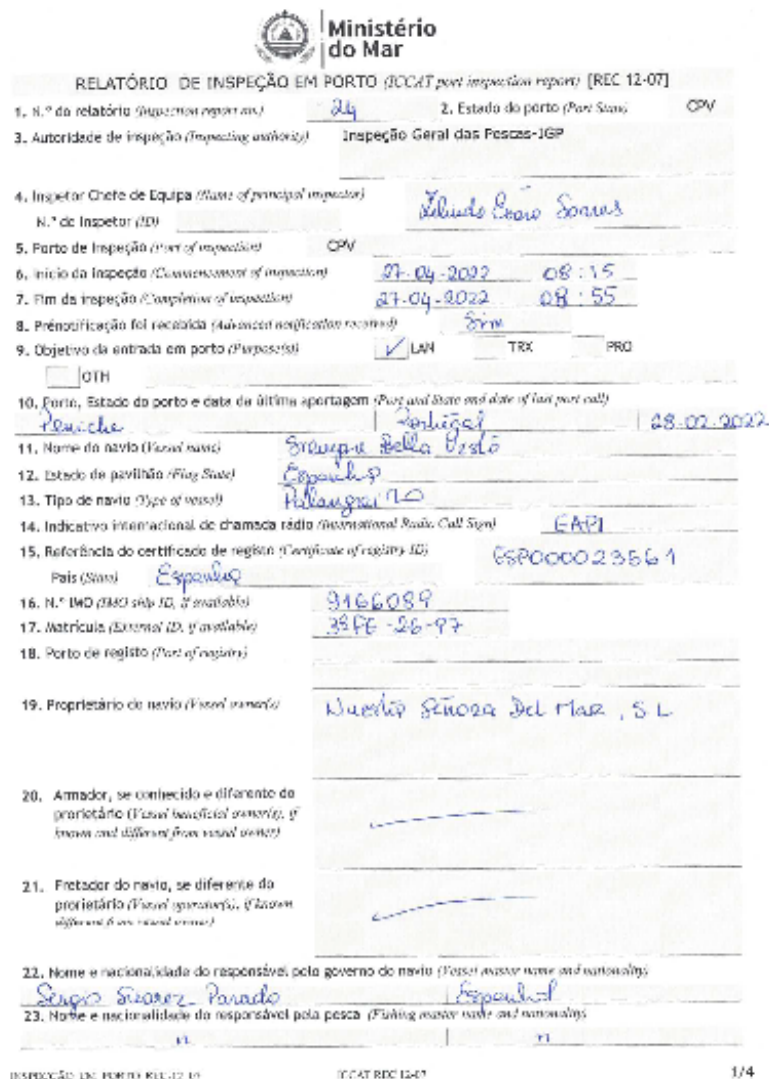 Ministério
do Mar
RELATÓRIO DE INSPEÇÃO EM PORTO (ICCAT port inspection report) [REC 12-07]
1. N.º do relatório (Inspection report no.) 24 2. Estado do porto (Port State) CPV
3. Autoridade de inspeção (Inspecting authority) Inspeção Geral das Pescas-IGP
4. Inspetor Chefe de Equipa (Name of principal inspector) Soares
N.º do Inspetor (ID)
5. Porto de Inspeção (Port of inspection) CPV
6. Inicio da inspeção (Commencement of inspection) 27-04-2022 08:15
7. Fim da inspeção (Completion of inspection) 27-04-2022 08:55
8. Prénotificação foi recebida (Advanced notification received) Sim
9. Objetivo da entrada em porto (Purpose(s)) ✓ LAN TRX PRO
OTH
10. Porto, Estado do porto e data da última aportagem (Port and State and date of last port call)
Peniche Portugal 28-02-2022
11. Nome do navio (Vessel name) Bella
12. Estado de pavilhão (Flag State) Espanha
13. Tipo de navio (Type of vessel) Palangreiro
14. Indicativo internacional de chamada rádio (International Radio Call Sign) EAPI
15. Referência do certificado de registo (Certificate of registry ID) ESP000023561
Pais (State) Espanha
16. N.º IMO (IMO ship ID, if available) 9166089
17. Matrícula (External ID, if available) 3ªFE-26-97
18. Porto de registo (Port of registry)
19. Proprietário do navio (Vessel owner(s)) Señora Del Mar, S L
20. Armador, se conhecido e diferente do
prorietário (Vessel beneficial owner(s), if
known and different from vessel owner)
21. Fretador do navio, se diferente do
prorietário (Vessel operator(s), if known
different from vessel owner)
22. Nome e nacionalidade do responsável pelo governo do navio (Vessel master name and nationality)
Sergio Suarez Parado Espanhol
23. Nome e nacionalidade do responsável pela pesca (Fishing master name and nationality)
" "
INSPECÇÃO EM PORTO REC-12-07 ICCAT REC 12-07 1/4